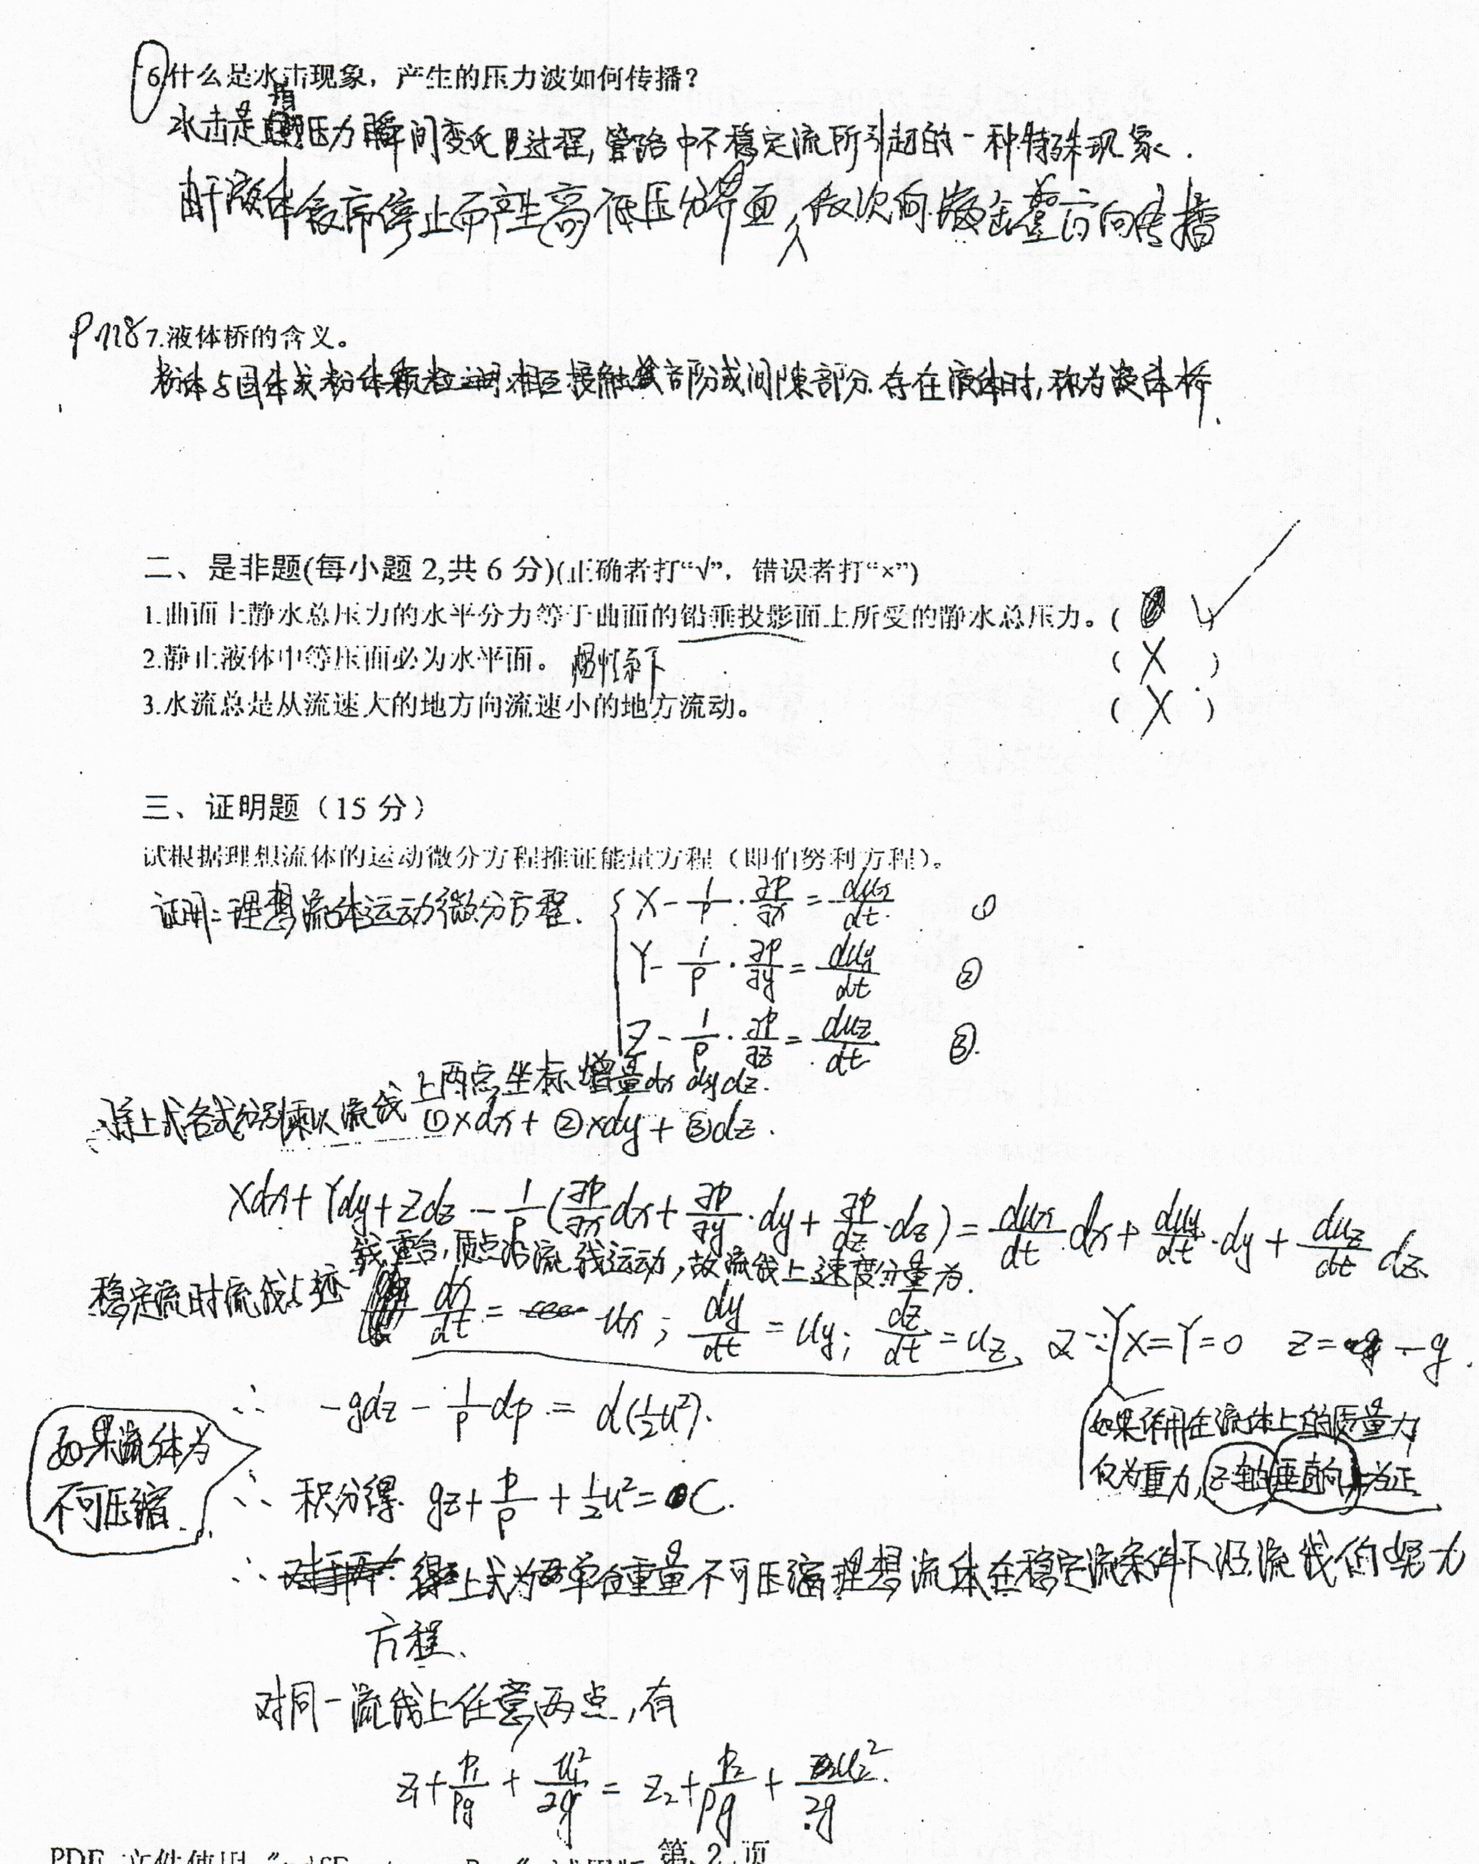 6.什么是水击现象，产生的压力波如何传播？
水击是指压力瞬间变化过程，管路中不稳定流所引起的一种特殊现象.
由于液体依序停止而产生高低压分界面，依次向 方向传播
P118 7.液体桥的含义。
粉体与固体或粉体颗粒 相互接触 部分或间隙部分存在液体时，称为液体桥.
二、是非题(每小题 2,共 6 分)(正确者打“√”，错误者打“×”)
1.曲面上静水总压力的水平分力等于曲面的铅垂投影面上所受的静水总压力。( √
2.静止液体中等压面必为水平面。 ( X )
3.水流总是从流速大的地方向流速小的地方流动。 ( X )
三、证明题（15 分）
试根据理想流体的运动微分方程推证能量方程（即伯努利方程）。
证明：理想流体运动微分方程. { X - 1/ρ · ∂p/∂x = dux/dt ①
Y - 1/ρ · ∂p/∂y = duy/dt ②
Z - 1/ρ · ∂p/∂z = duz/dt ③.
将上式各式分别乘以流线上两点坐标增量dx dy dz.
①×dx + ②×dy + ③dz.
Xdx + Ydy + Zdz - 1/ρ (∂p/∂x dx + ∂p/∂y · dy + ∂p/∂z · dz) = dux/dt · dx + duy/dt · dy + duz/dt dz.
稳定流时流线与迹线重合，质点沿流线运动，故流线上速度分量为.
dx/dt = ux ; dy/dt = uy; dz/dt = uz, 又∵ X=Y=0 Z= -g.
如果作用在流体上的质量力
仅为重力，z轴垂直向上为正
∴ -gdz - 1/ρ dp = d(½u²).
如果流体为
不可压缩
∴ 积分得 gz + p/ρ + ½u² = C.
∴ 得上式为单位重量不可压缩理想流体在稳定流条件下沿流线的努力
方程.
对同一流线上任意两点，有
z₁ + p₁/ρg + u₁²/2g = z₂ + p₂/ρg + u₂²/2g
第 2 页